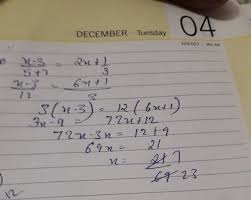 DECEMBER Tuesday 04
x-3/5+7 = 2x+1/3
x-3/12 = 6x+1/3
3(x-3) = 12(6x+1)
3x-9 = 72x+12
72x-3x = 12+9
69x = 21
x = 21 7
69 23
12